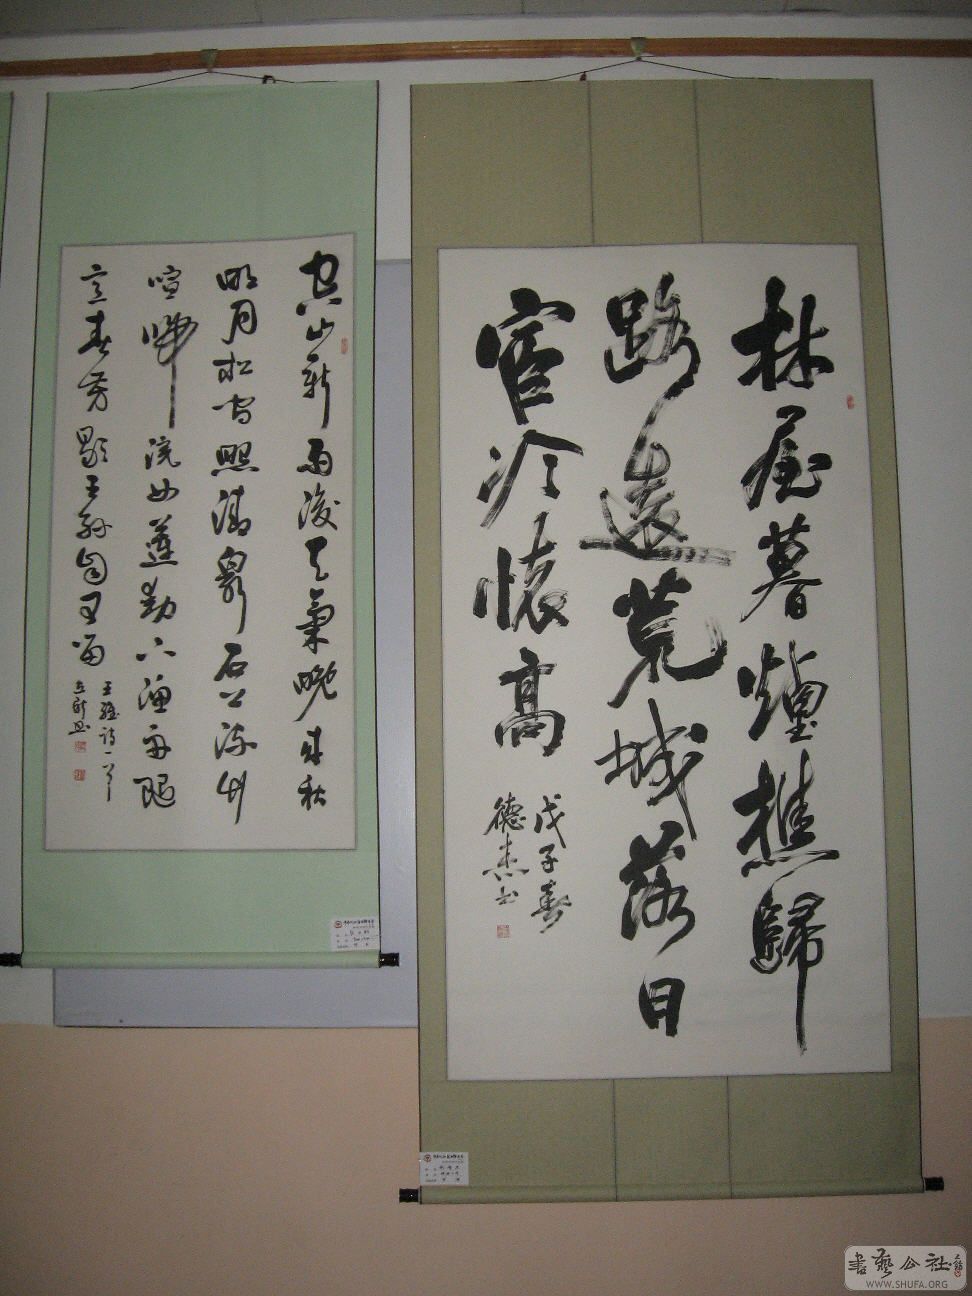 林屋暮煙樵歸
路遠荒城落日
官冷懷高
戊子春
德杰书
空山新雨後天氣晚來秋
明月松間照清泉石上流竹
喧歸浣女蓮動下漁舟隨
意春芳歇王孫自可留
王維詩一首
書藝公社
WWW.SHUFA.ORG